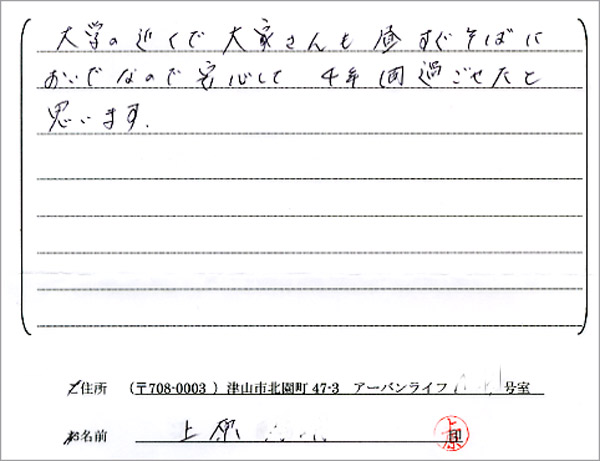 大学の近くで大家さんも昼すぐそばに
おいでなので安心して 4年間過ごせたと
思います.
住所 （〒708-0003 ）津山市北園町 47-3 アーバンライフ 号室
お名前 上原
上原